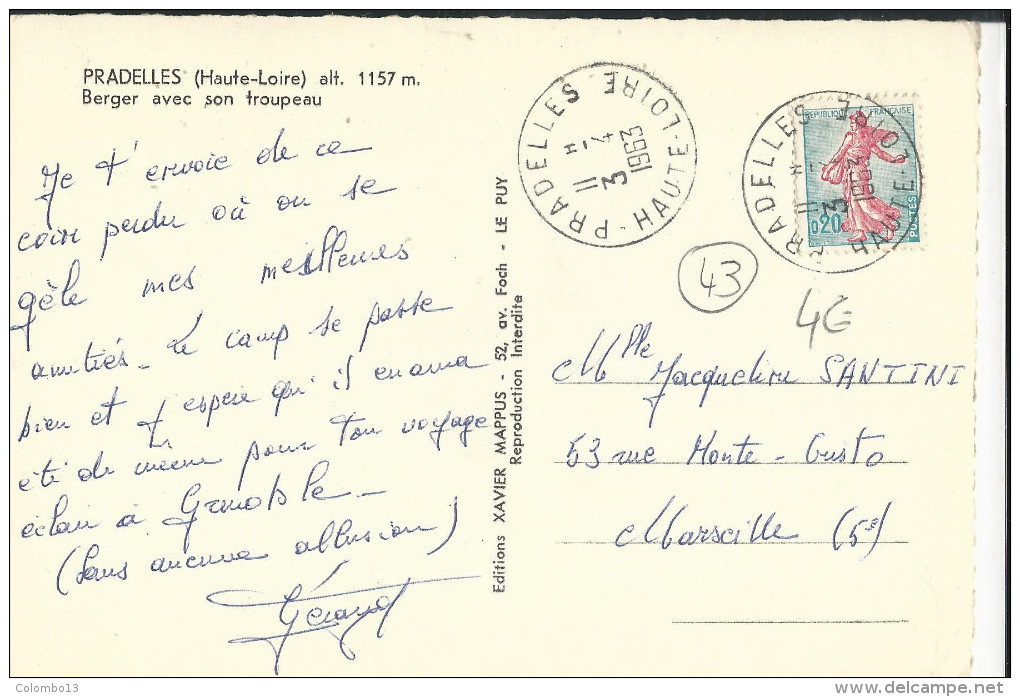 PRADELLES (Haute-Loire) alt. 1157 m.
Berger avec son troupeau
Je t'envoie de ce
coin perdu où on se
gèle mes meilleures
amitiés. Le camp se passe
bien et j'espère qu'il en aura
été de même pour ton voyage
éclair à Grenoble.
(Sans aucune allusion)
Gérard
Editions XAVIER MAPPUS - 52, av. Foch - LE PUY
Reproduction Interdite
PRADELLES HAUTE-LOIRE
11 H
3 - 4
1963
REPUBLIQUE FRANÇAISE
0,20
POSTES
PRADELLES HAUTE-LOIRE
11 H
3
1963
43
4€
Mlle Jacqueline SANTINI
53 rue Monte-Cristo
Marseille (5e)
Colombo13
www.delcampe.net